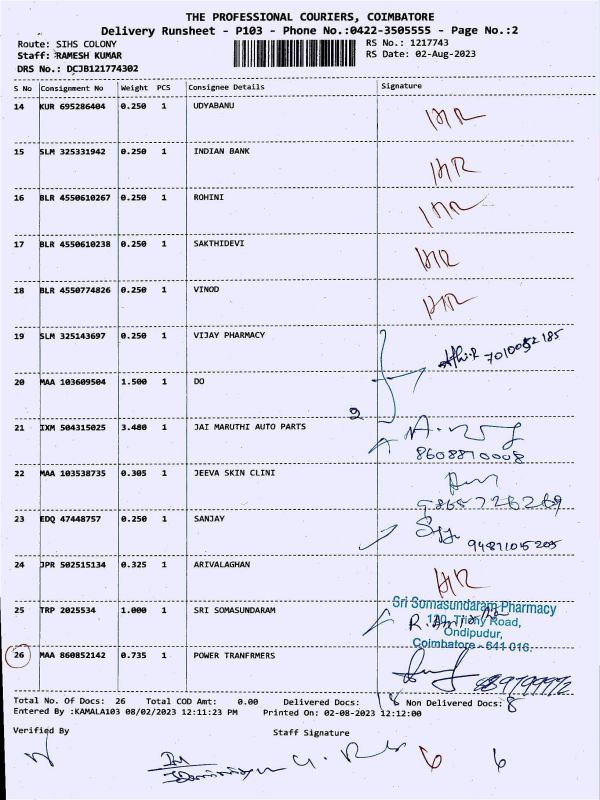 THE PROFESSIONAL COURIERS, COIMBATORE
Delivery Runsheet - P103 - Phone No.:0422-3505555 - Page No.:2
Route: SIHS COLONY RS No.: 1217743
Staff: RAMESH KUMAR RS Date: 02-Aug-2023
DRS No.: DCJB121774302
S No Consignment No Weight PCS Consignee Details Signature
14 KUR 695286404 0.250 1 UDYABANU HR
15 SLM 325331942 0.250 1 INDIAN BANK HR
16 BLR 4550610267 0.250 1 ROHINI HR
17 BLR 4550610238 0.250 1 SAKTHIDEVI HR
18 BLR 4550774826 0.250 1 VINOD HR
19 SLM 325143697 0.250 1 VIJAY PHARMACY
20 MAA 103609504 1.500 1 DO
21 IXM 504315025 3.480 1 JAI MARUTHI AUTO PARTS
8608870008
22 MAA 103538735 0.305 1 JEEVA SKIN CLINI
23 EDQ 47448757 0.250 1 SANJAY
24 JPR 502515134 0.325 1 ARIVALAGHAN HR
25 TRP 2025534 1.000 1 SRI SOMASUNDARAM
Sri Somasundaram Pharmacy
Trichy Road,
Ondipudur,
Coimbatore - 641 016.
26 MAA 860852142 0.735 1 POWER TRANFRMERS
Total No. Of Docs: 26 Total COD Amt: 0.00 Delivered Docs: 18 Non Delivered Docs: 8
Entered By :KAMALA103 08/02/2023 12:11:23 PM Printed On: 02-08-2023 12:12:00
Verified By Staff Signature
6 6